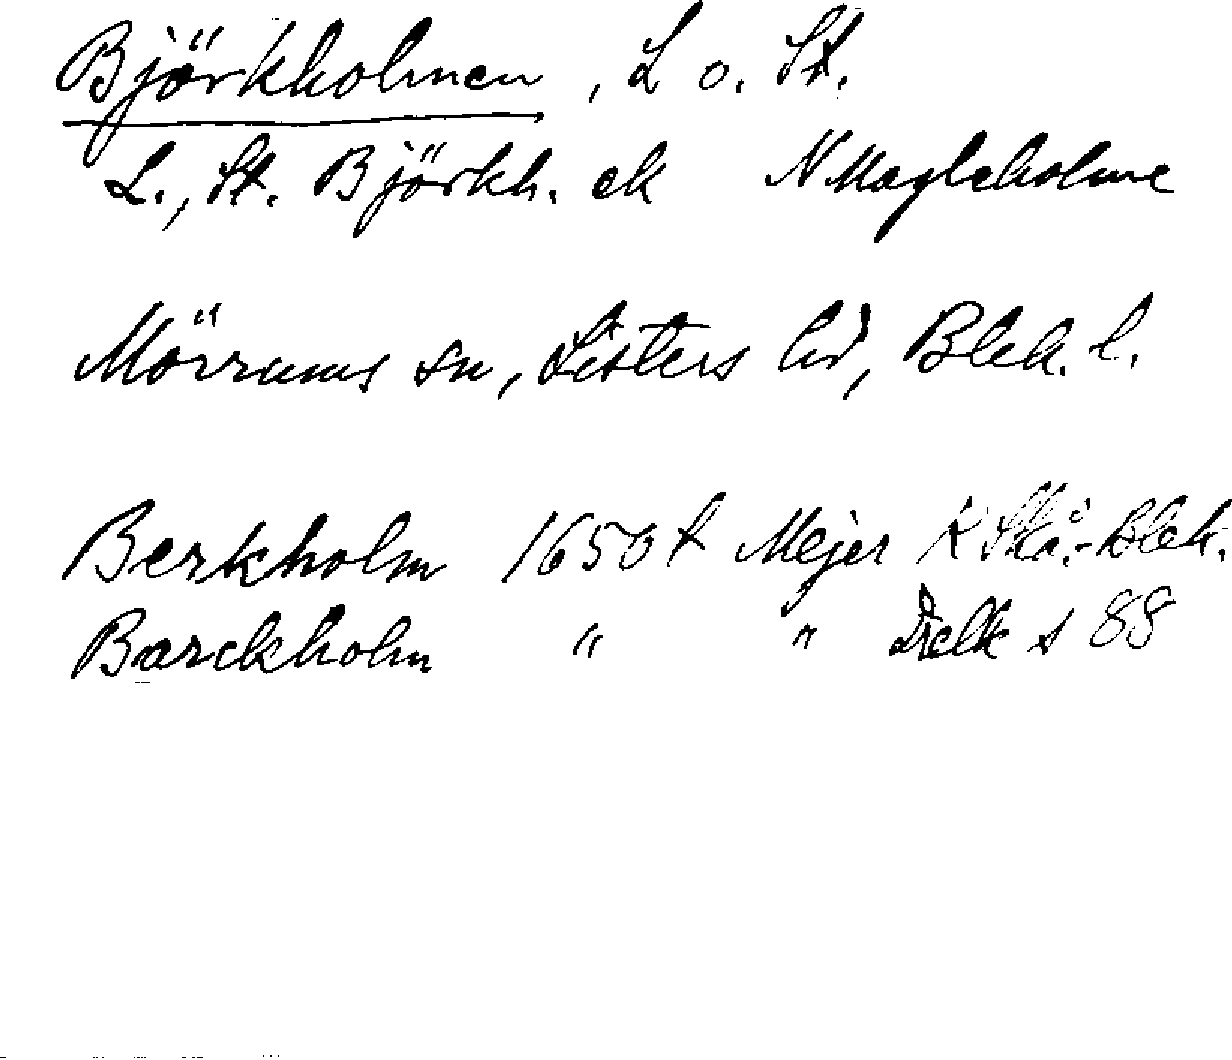 Björkholmen, L o. St.
L., St. Björkh. ek N Magleholme
Mörrums sn, Listers hd, Blek. l.
Berkholm 1650 t Mejer K Skå.-Blek.
Barckholm " " s 88